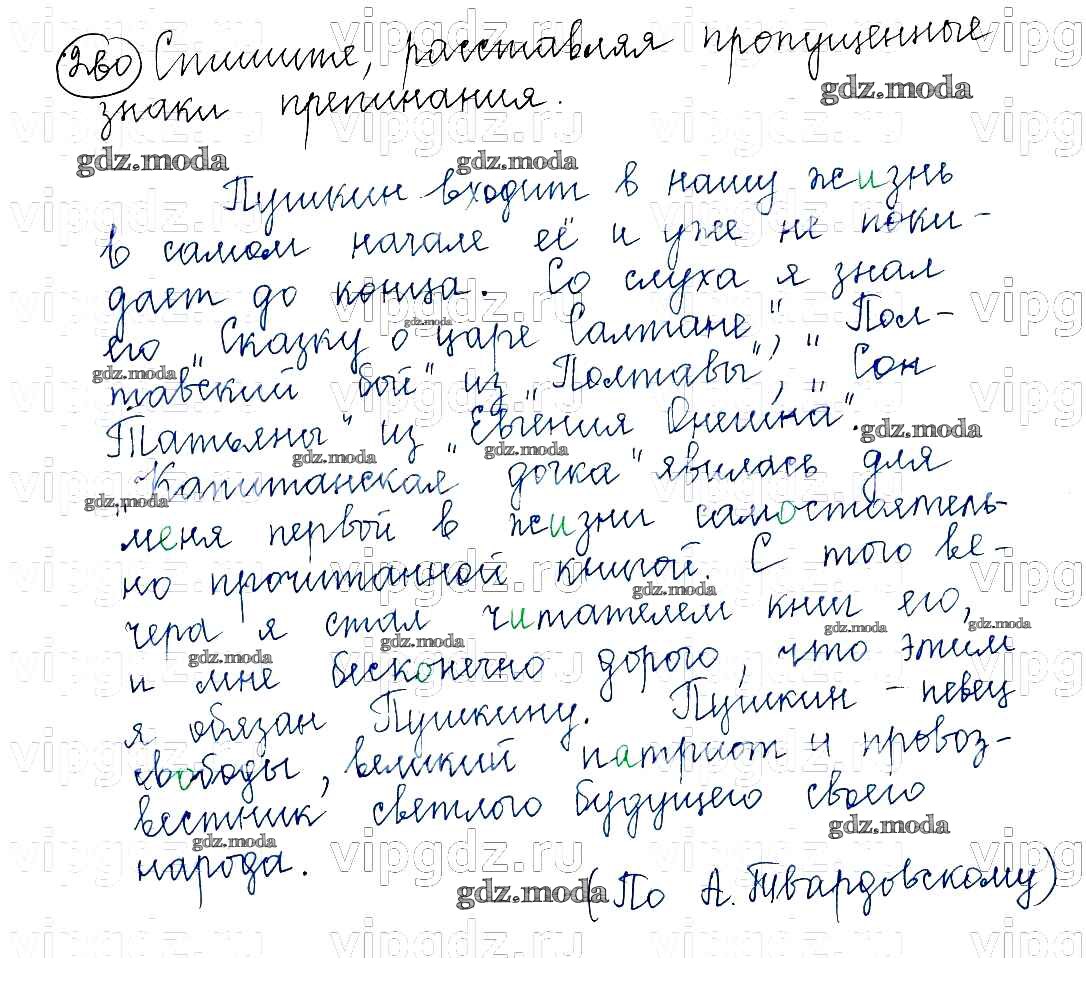 260 Спишите, расставляя пропущенные
знаки препинания.
Пушкин входит в нашу жизнь
в самом начале её и уже не поки-
дает до конца. Со слуха я знал
его „Сказку о царе Салтане", „Пол-
тавский бой" из „Полтавы", „Сон
Татьяны" из „Евгения Онегина".
„Капитанская дочка" явилась для
меня первой в жизни самостоятель-
но прочитанной книгой. С того ве-
чера я стал читателем книг его,
и мне бесконечно дорого, что этим
я обязан Пушкину. Пушкин – певец
свободы, великий патриот и провоз-
вестник светлого будущего своего
народа.
(По А. Твардовскому)